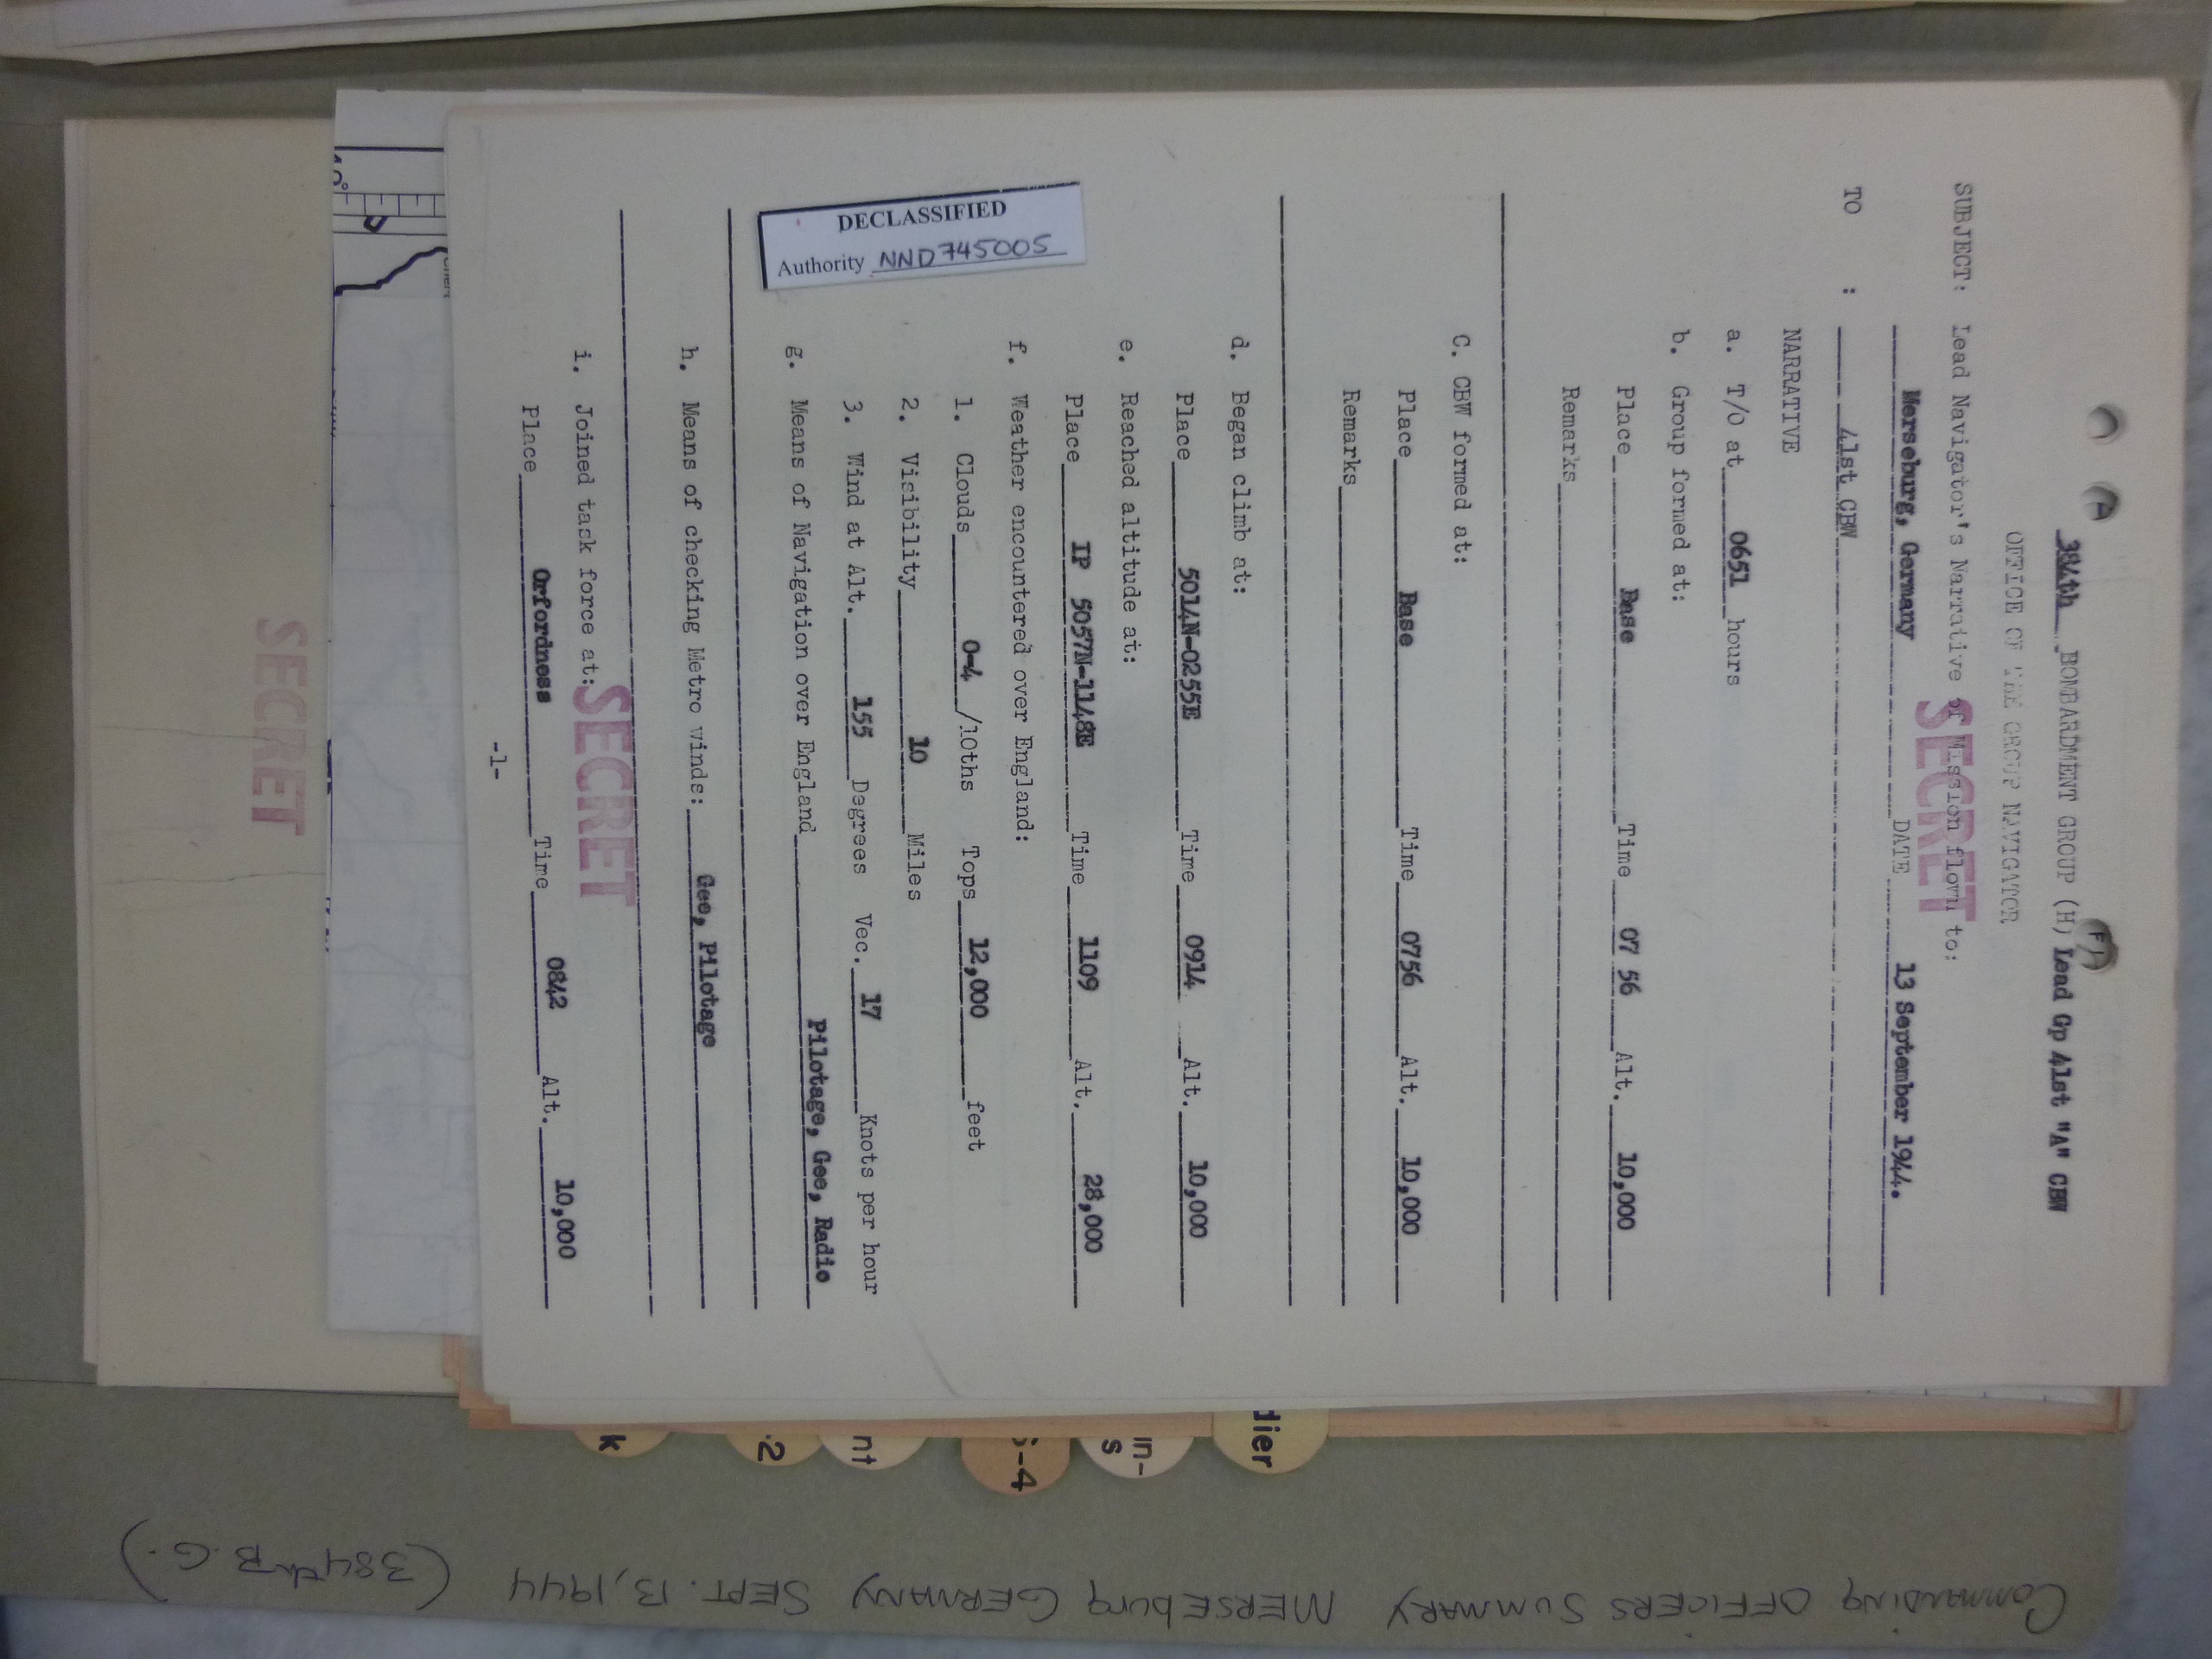 384th BOMBARDMENT GROUP (H) Lead Gp 41st "A" CBW
OFFICE OF THE GROUP NAVIGATOR
SECRET
SUBJECT: Lead Navigator's Narrative of Mission flown to:
Merseburg, Germany DATE 13 September 1944.
TO : 41st CBW
NARRATIVE
a. T/O at 0651 hours
b. Group formed at:
Place Base Time 07 56 Alt. 10,000
Remarks
C. CBW formed at:
Place Base Time 0756 Alt. 10,000
Remarks
d. Began climb at:
Place 5014N-0255E Time 0914 Alt. 10,000
e. Reached altitude at:
Place IP 5057N-1148E Time 1109 Alt. 28,000
f. Weather encountered over England:
1. Clouds 0-4 /10ths Tops 12,000 feet
2. Visibility 10 Miles
3. Wind at Alt. 155 Degrees Vec. 17 Knots per hour
g. Means of Navigation over England Pilotage, Gee, Radio
h. Means of checking Metro winds: Gee, Pilotage
i. Joined task force at:
SECRET
Place Orfordness Time 0842 Alt. 10,000
-1-
DECLASSIFIED
Authority NND745005
SECRET
10°
dier
in-
s
-4
nt
.2
k
COMMANDING OFFICERS SUMMARY MERSEBURG GERMANY SEPT. 13, 1944 (384th B.G.)